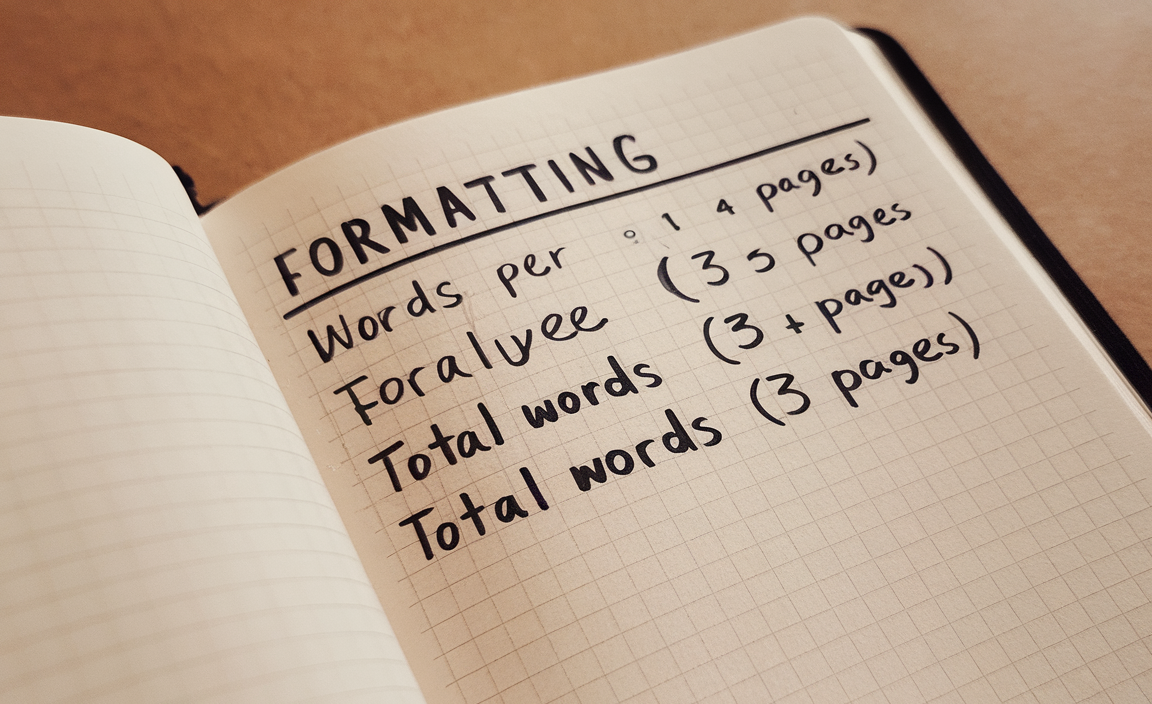 FORMATTING
Words per : 1 4 pages)
Foralyee (3 5 pages
Total words (3 + page))
Total words (3 pages)